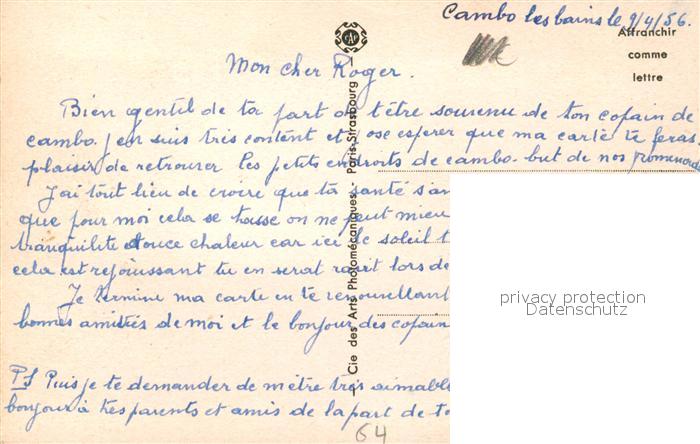 Cambo les bains le 9/4/56.
Affranchir
comme
lettre
CAP
Mon cher Roger.
Bien gentil de ta part de t'être souvenu de ton copain de
cambo. j'en suis très content et j'ose esperer que ma carte te feras
plaisir de retrouver les petits endroits de cambo. but de nos promenades
J'ai tout lieu de croire que ta santé s'am
que pour moi cela se tasse on ne peut mieu
tranquilité douce chaleur car ici le soleil
cela est rejouissant tu en serat ravit lors de
Je termine ma carte en te renouvellant
bonnes amitiés de moi et le bonjour des copain
PS Puis je te demander de mètre très aimable
bonjour à tes parents et amis de la part de to
Cie des Arts Photomécaniques - Paris-Strasbourg
64
privacy protection
Datenschutz